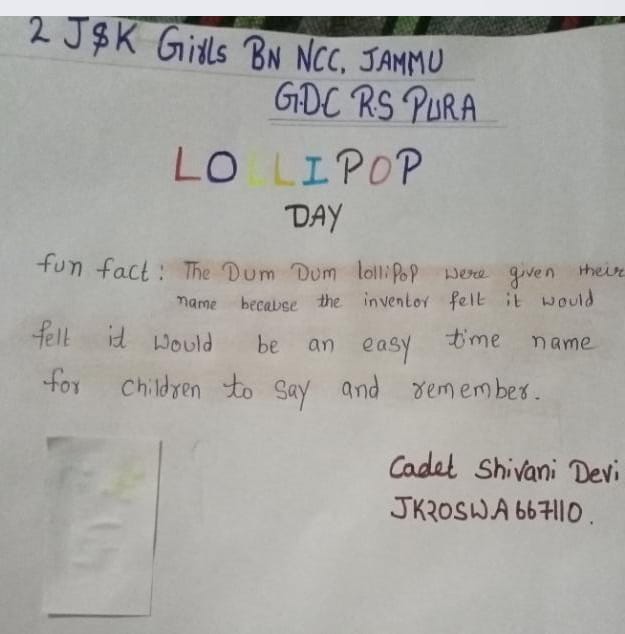 2 J&K Girls BN NCC, JAMMU
G.D.C R.S PURA
LOLLIPOP
DAY
fun fact: The Dum Dum lollipop were given their
name because the inventor felt it would
felt id would be an easy time name
for children to say and remember.
Cadet Shivani Devi
JK20SWA667110.